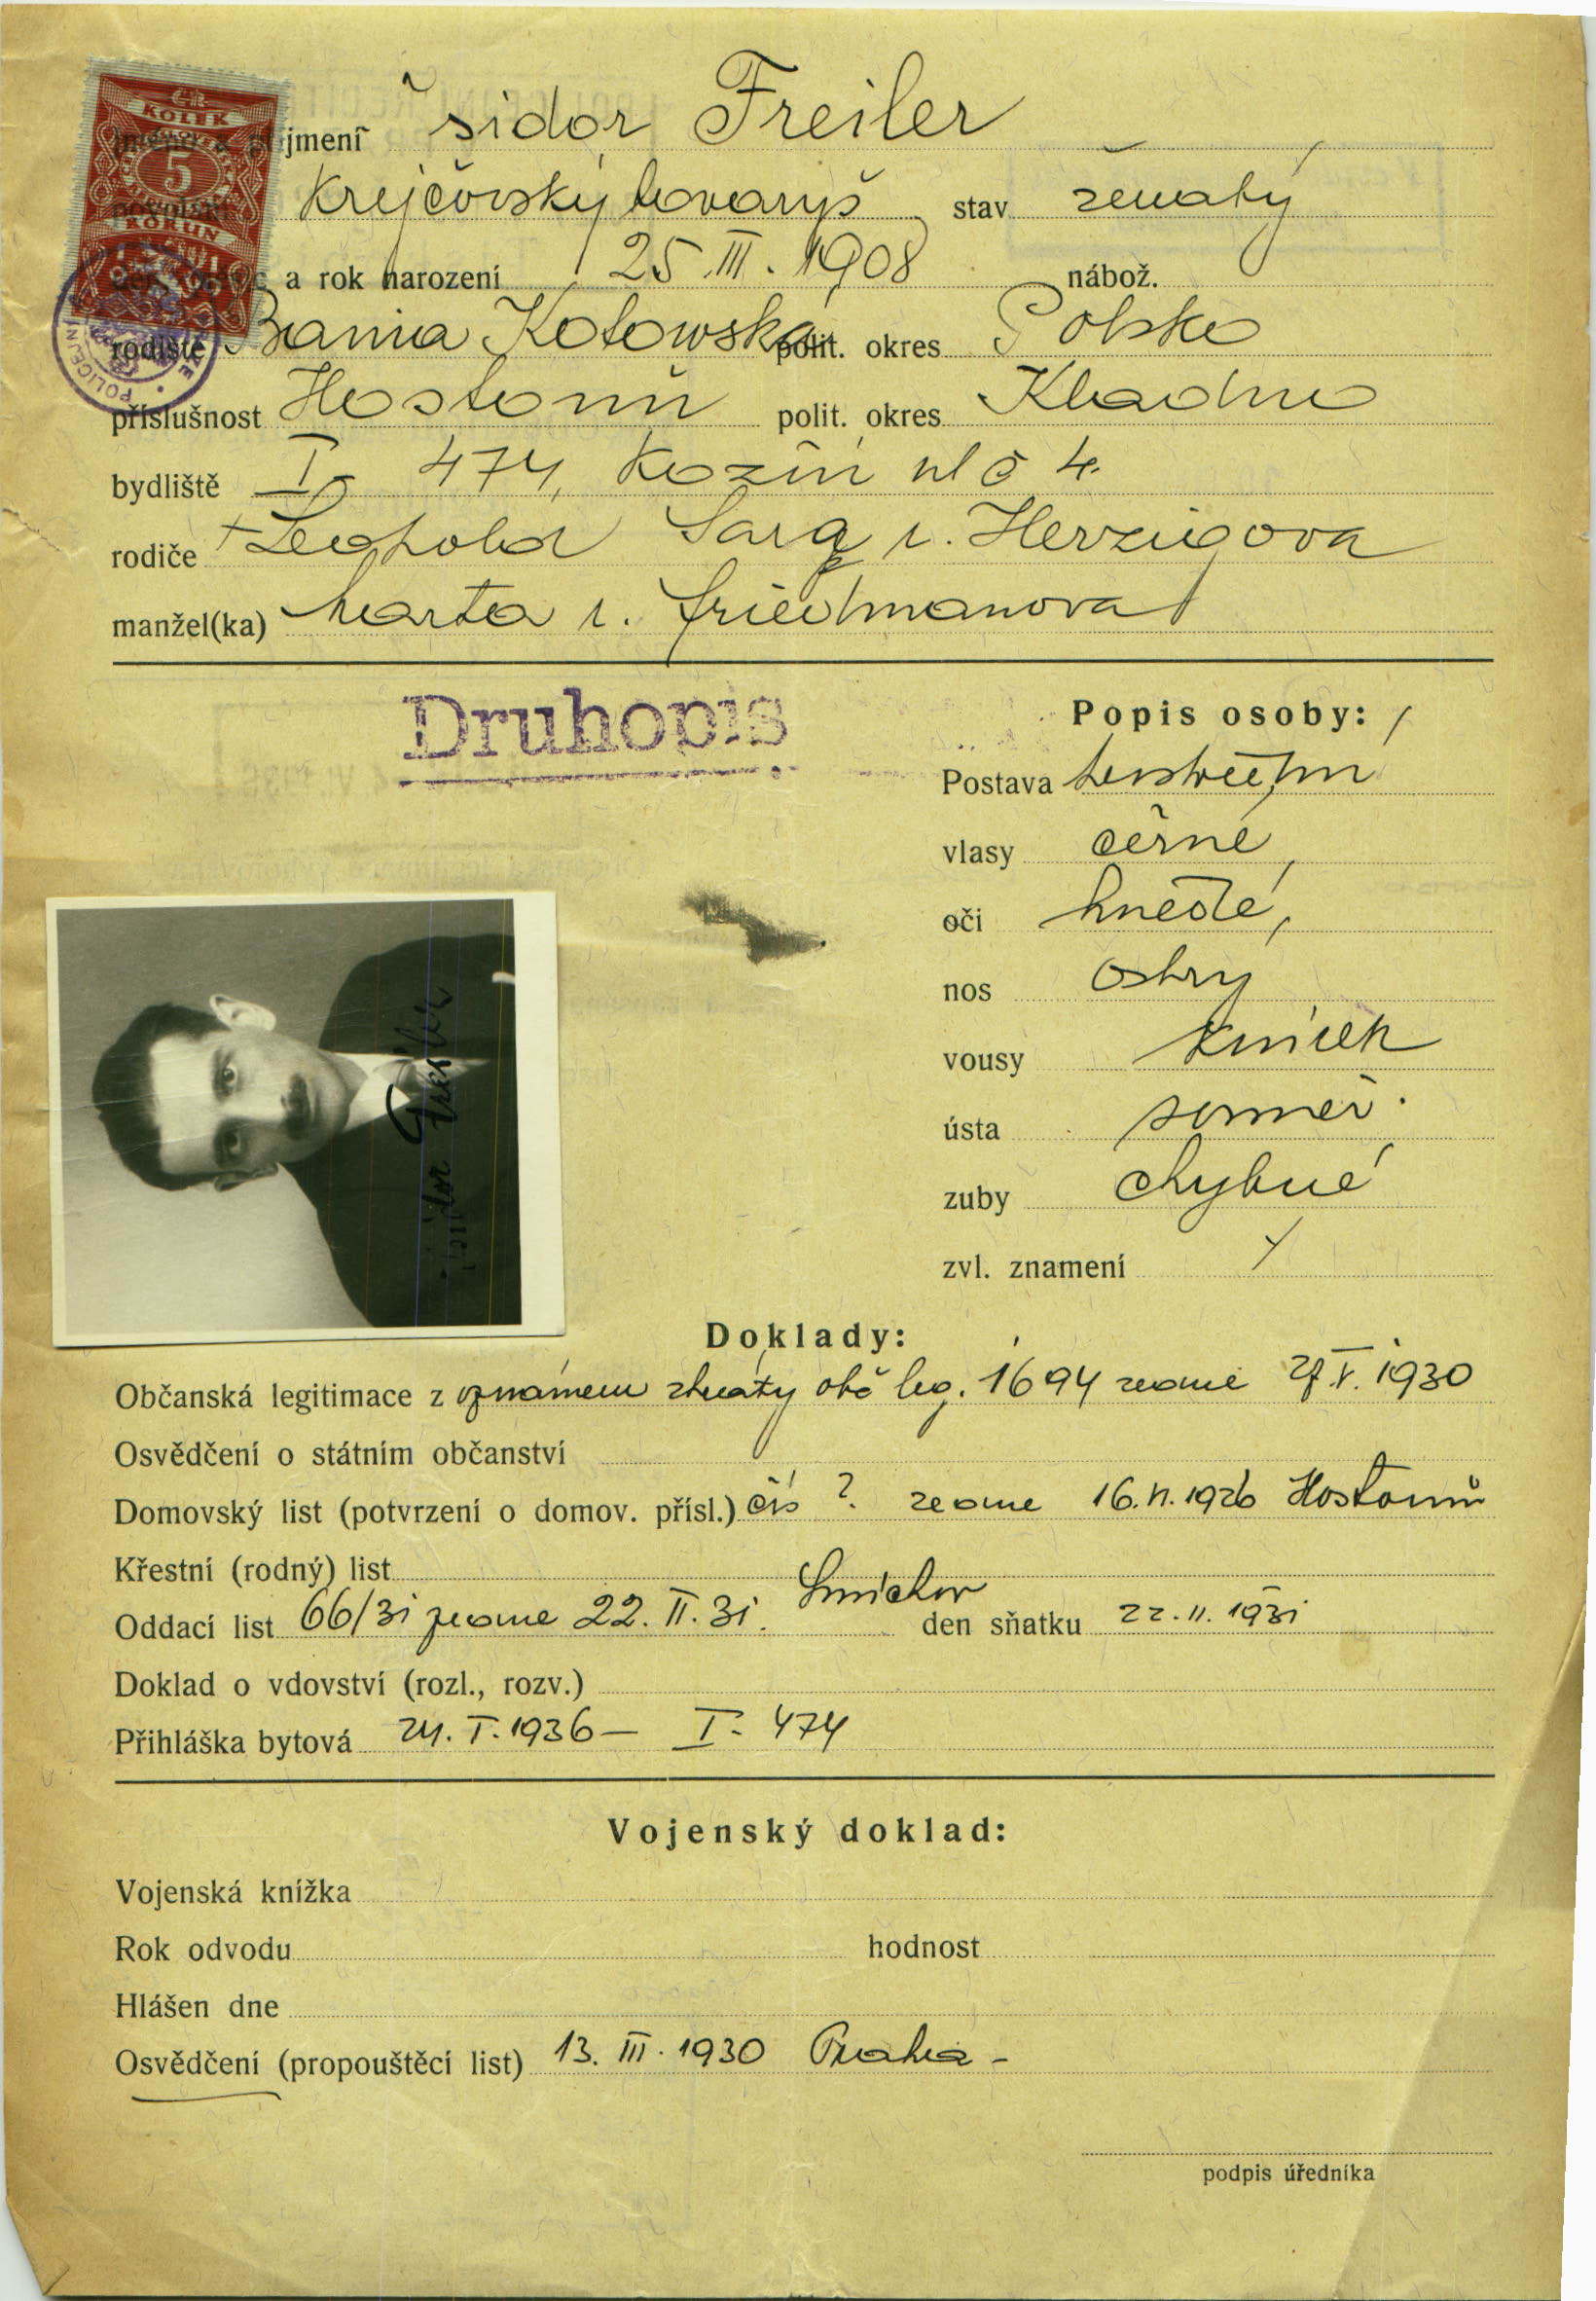 ČR
KOLEK
5
KORUN
jméno a příjmení Isidor Freiler
povolání Krejčovský tovaryš stav ženatý
a rok narození 25. III. 1908 nábož.
rodiště Bania Kotowska polit. okres Polsko
příslušnost Hostouň polit. okres Kladno
bydliště I - 474, Kozí ul č 4.
rodiče + Leopold Sara r. Herzigova
manžel(ka) Marta r. Friedmanova
Druhopis
Popis osoby:
Postava
vlasy černé
oči hnědé
nos ostrý
vousy knírek
ústa souměr.
zuby chybné
zvl. znamení
Isidor Freiler
Doklady:
Občanská legitimace z oznámení ztráty obč leg. 1694 V. 1930
Osvědčení o státním občanství
Domovský list (potvrzení o domov. přísl.) čís ? 1926 Hostouň
Křestní (rodný) list
Oddací list 66/31 22. II. 31. Smíchov den sňatku 22. II. 1931
Doklad o vdovství (rozl., rozv.)
Přihláška bytová 24. I. 1936 — I - 474
Vojenský doklad:
Vojenská knížka
Rok odvodu hodnost
Hlášen dne
Osvědčení (propouštěcí list) 13. III. 1930 Praha -
podpis úředníka